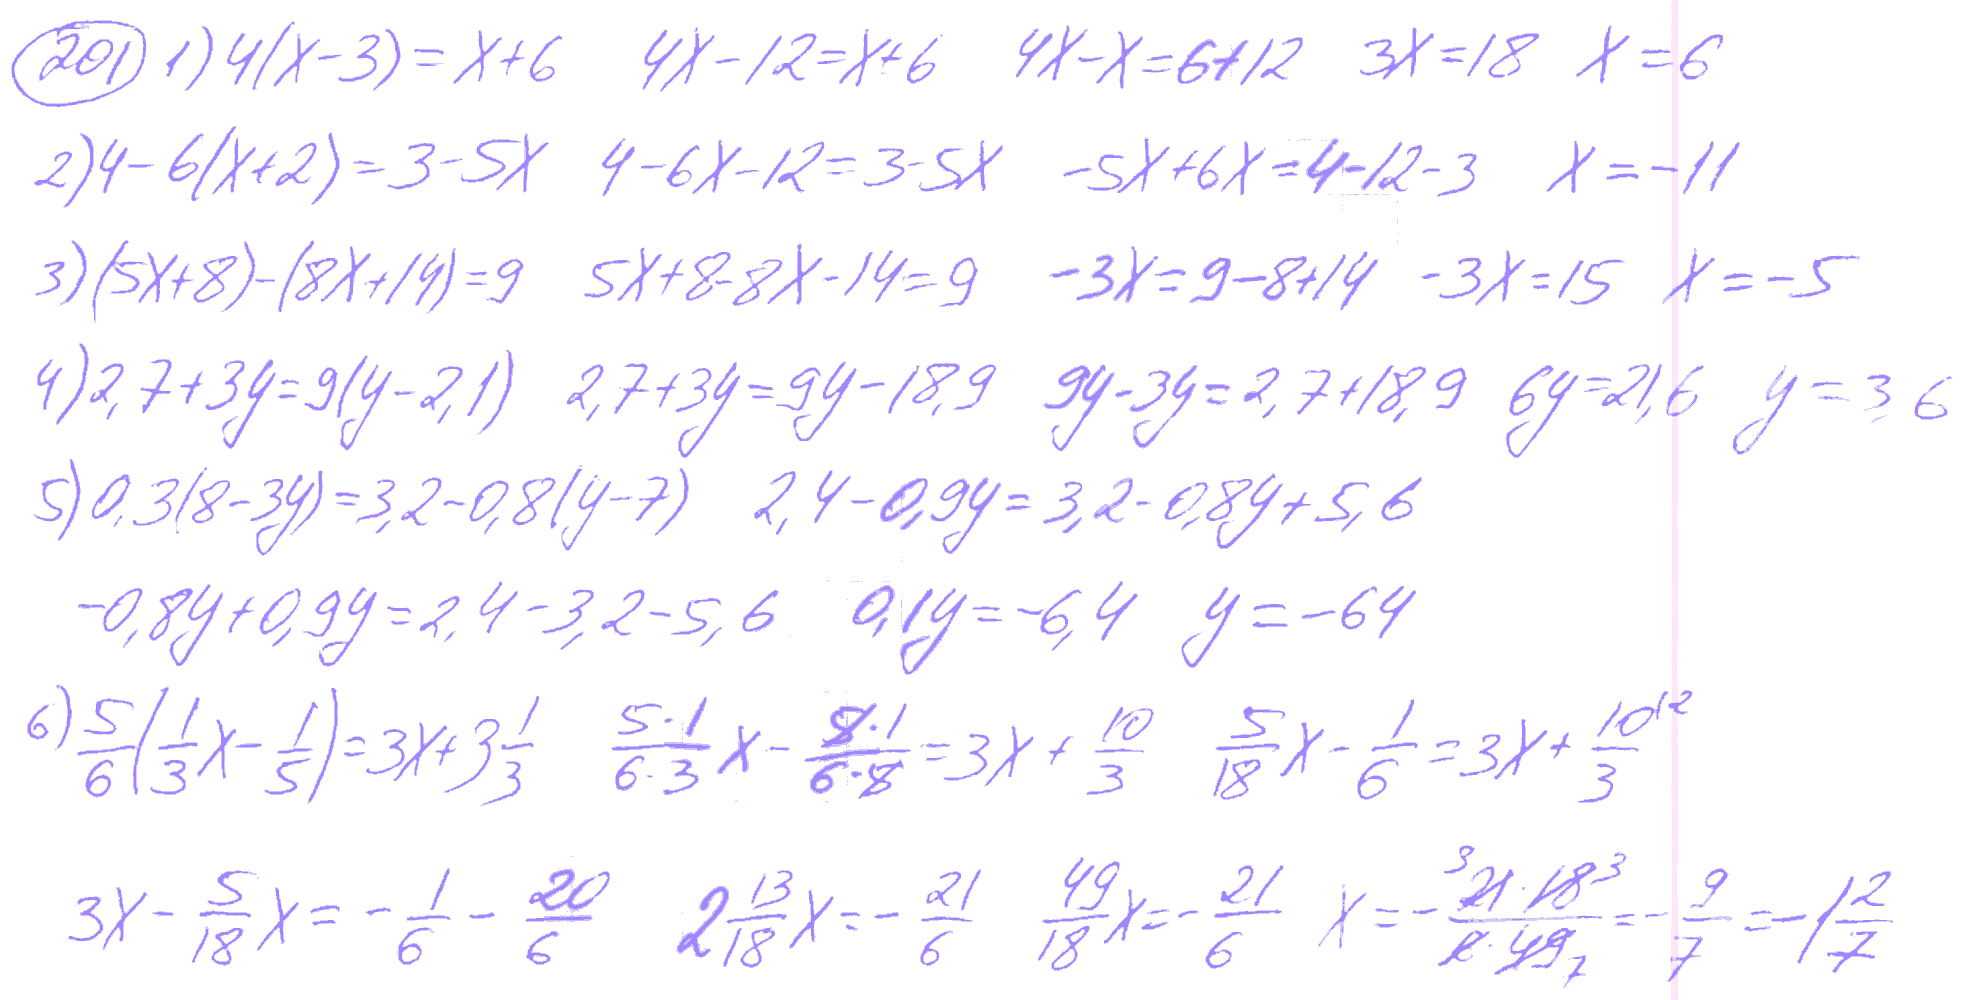 201 1) 4(x-3)=x+6 4x-12=x+6 4x-x=6+12 3x=18 x=6
2) 4-6(x+2)=3-5x 4-6x-12=3-5x -5x+6x=4-12-3 x=-11
3) (5x+8)-(8x+14)=9 5x+8-8x-14=9 -3x=9-8+14 -3x=15 x=-5
4) 2,7+3y=9(y-2,1) 2,7+3y=9y-18,9 9y-3y=2,7+18,9 6y=21,6 y=3,6
5) 0,3(8-3y)=3,2-0,8(y-7) 2,4-0,9y=3,2-0,8y+5,6
-0,8y+0,9y=2,4-3,2-5,6 0,1y=-6,4 y=-64
6) 5/6(1/3x-1/5)=3x+3 1/3 5·1/6·3 x - 5·1/6·5 = 3x + 10/3 5/18 x - 1/6 = 3x + 10/3 12
3x - 5/18 x = - 1/6 - 20/6 2 13/18 x = - 21/6 49/18 x = - 21/6 x = - 3 21·18 3/6·49 7 = - 9/7 = -1 2/7